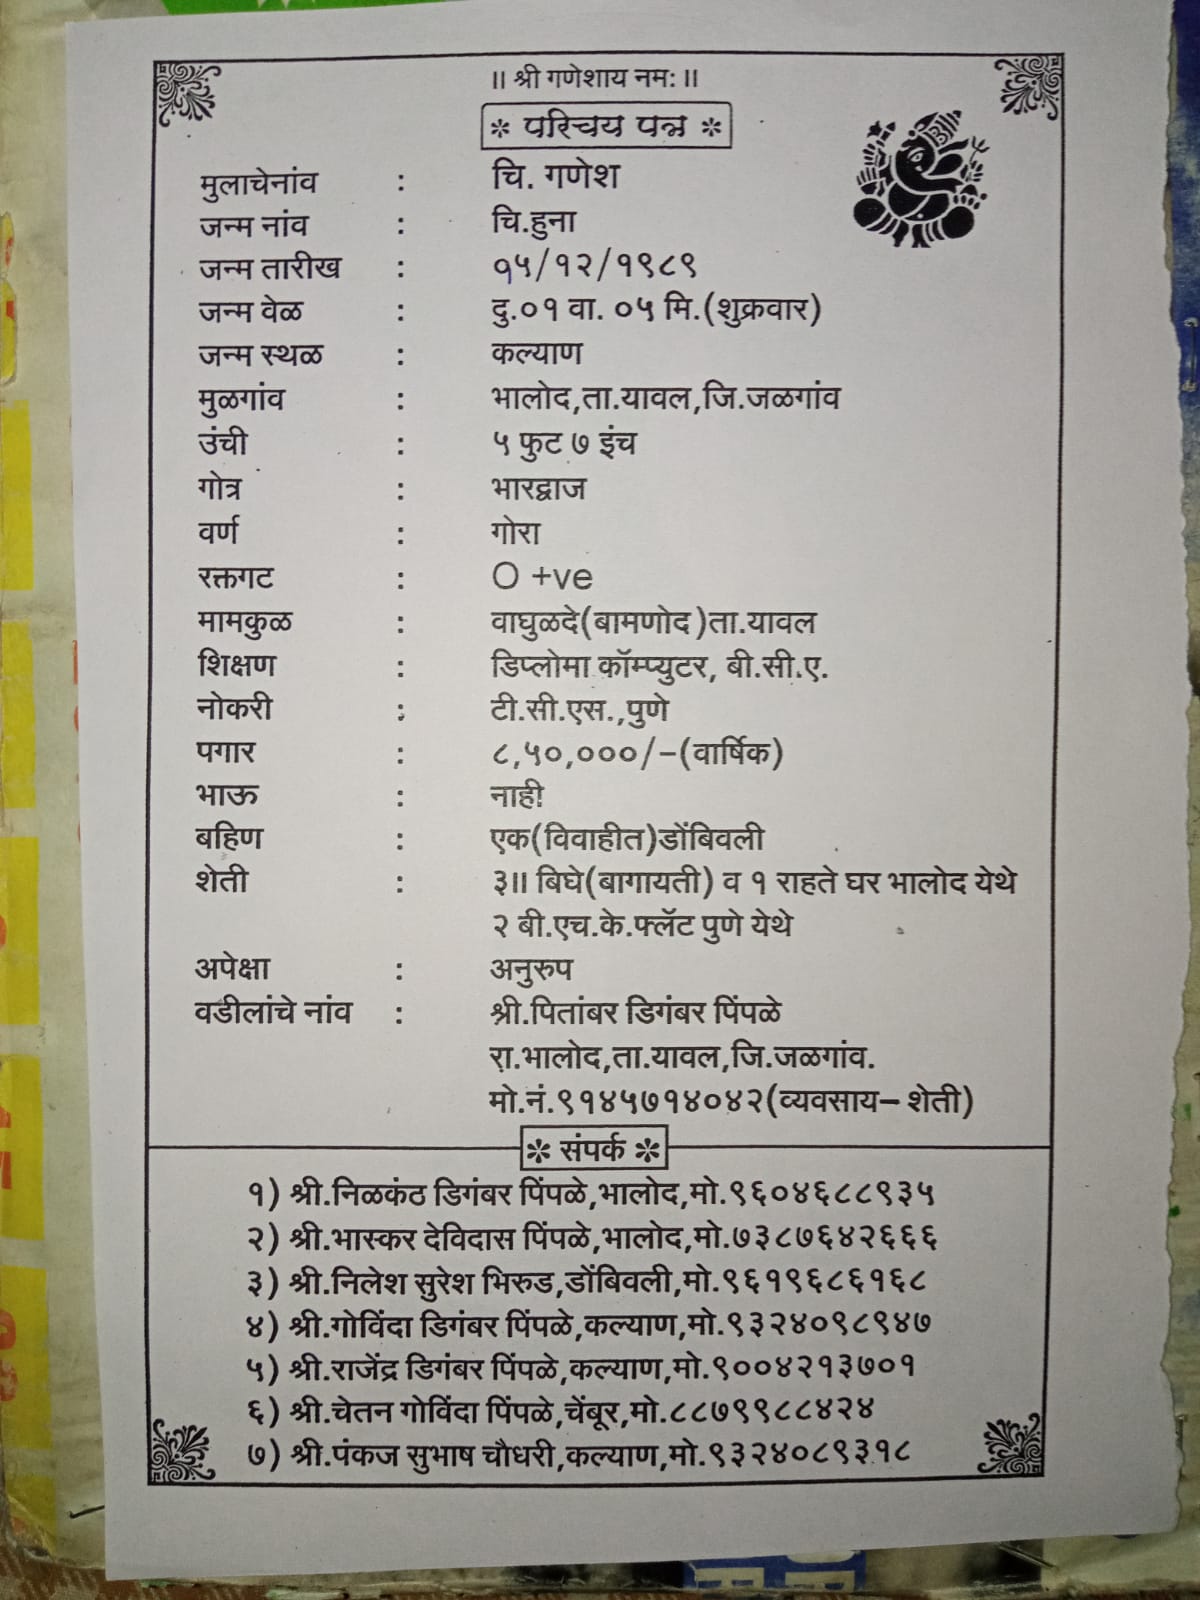 ॥ श्री गणेशाय नमः ॥
* परिचय पत्र *
मुलाचेनांव : चि. गणेश
जन्म नांव : चि.हुना
जन्म तारीख : १५/१२/१९८९
जन्म वेळ : दु.०१ वा. ०५ मि.(शुक्रवार)
जन्म स्थळ : कल्याण
मुळगांव : भालोद,ता.यावल,जि.जळगांव
उंची : ५ फुट ७ इंच
गोत्र : भारद्वाज
वर्ण : गोरा
रक्तगट : O +ve
मामकुळ : वाघुळदे(बामणोद)ता.यावल
शिक्षण : डिप्लोमा कॉम्प्युटर, बी.सी.ए.
नोकरी : टी.सी.एस.,पुणे
पगार : ८,५०,०००/-(वार्षिक)
भाऊ : नाही
बहिण : एक(विवाहीत)डोंबिवली
शेती : ३॥ बिघे(बागायती) व १ राहते घर भालोद येथे
२ बी.एच.के.फ्लॅट पुणे येथे
अपेक्षा : अनुरुप
वडीलांचे नांव : श्री.पितांबर डिगंबर पिंपळे
रा.भालोद,ता.यावल,जि.जळगांव.
मो.नं.९१४५७१४०४२(व्यवसाय- शेती)
* संपर्क *
१) श्री.निळकंठ डिगंबर पिंपळे,भालोद,मो.९६०४६८८९३५
२) श्री.भास्कर देविदास पिंपळे,भालोद,मो.७३८७६४२६६६
३) श्री.निलेश सुरेश भिरुड,डोंबिवली,मो.९६१९६८६१६८
४) श्री.गोविंदा डिगंबर पिंपळे,कल्याण,मो.९३२४०९८९४७
५) श्री.राजेंद्र डिगंबर पिंपळे,कल्याण,मो.९००४२१३७०१
६) श्री.चेतन गोविंदा पिंपळे,चेंबूर,मो.८८७९९८८४२४
७) श्री.पंकज सुभाष चौधरी,कल्याण,मो.९३२४०८९३१८